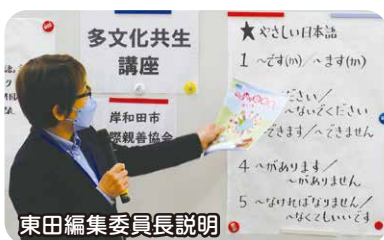 多文化共生
講座
岸和田市
際親善協会
★やさしい日本語
1 ～です(か)/～ます(か)
ださい/
～ないでください
できます/～できません
4 ～があります/
～がありません
5 ～なければなりません/
～なくてもいいです
東田編集委員長説明